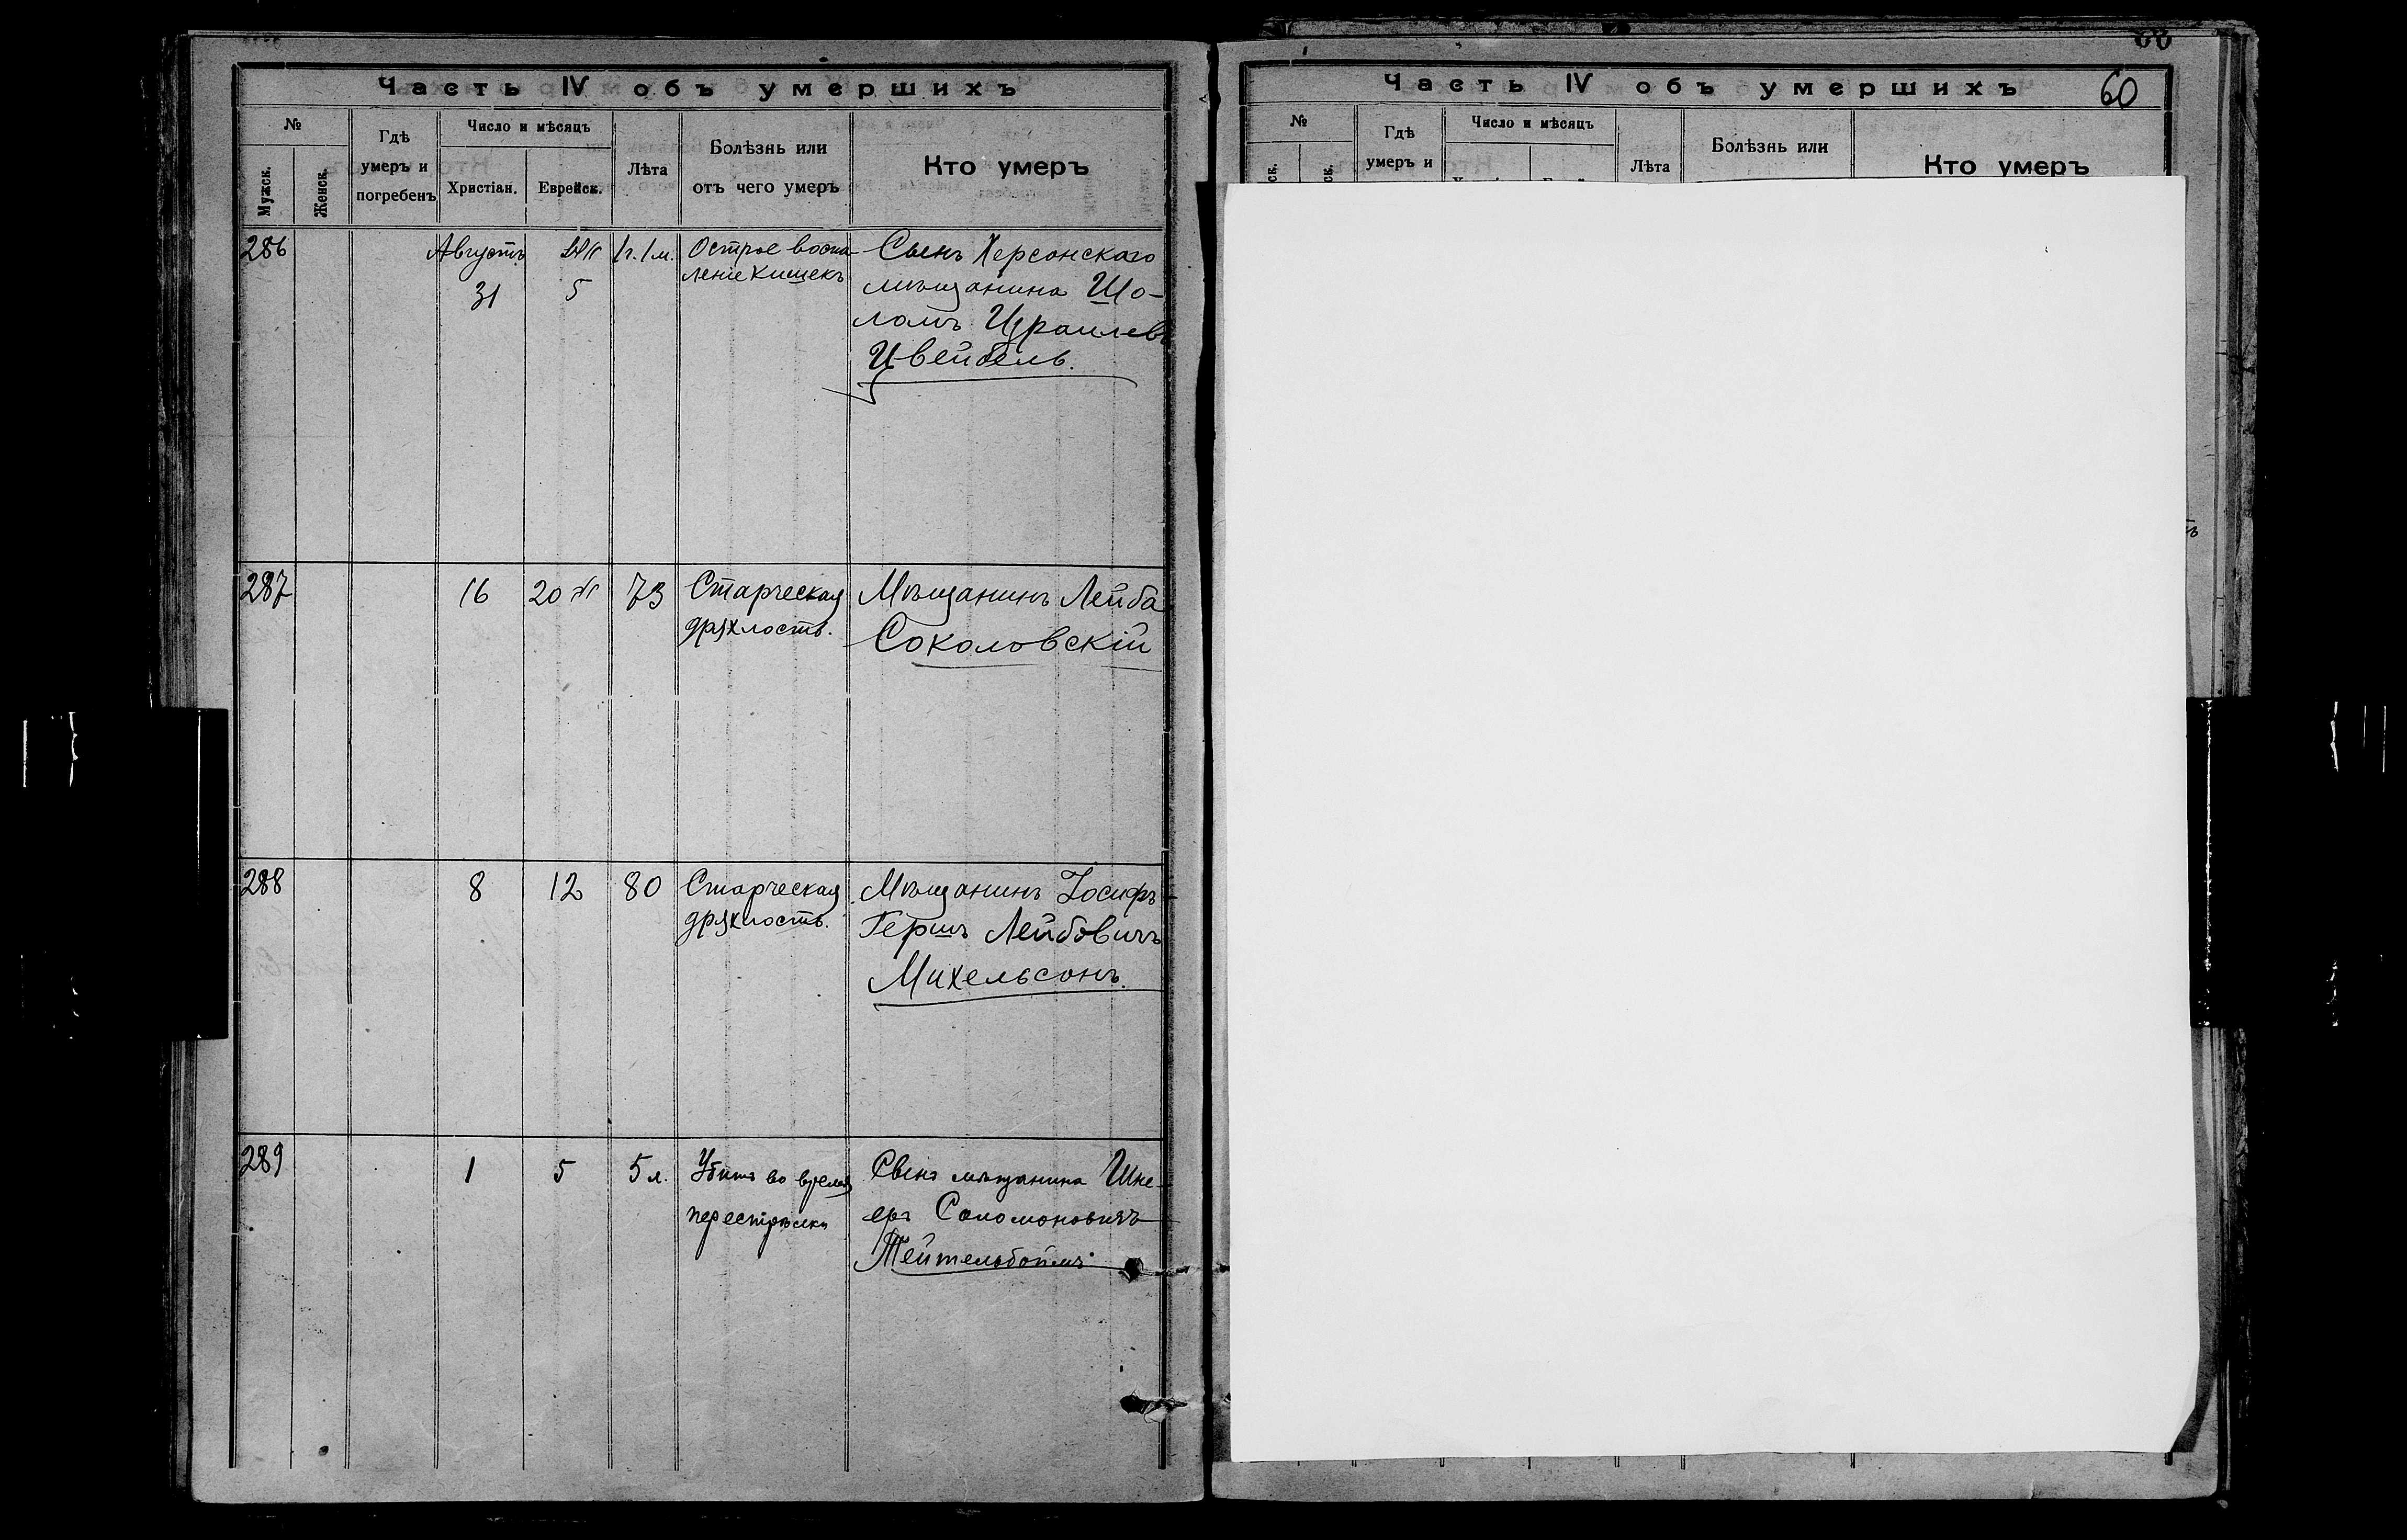 Часть IV объ умершихъ
№
Мужск.
Женск.
Гдѣ
умеръ и
погребенъ
Число и мѣсяцъ
Христіан.
Еврейск.
Лѣта
Болѣзнь или
отъ чего умеръ
Кто умеръ
286
Августъ
31
5
1г. 1м.
Острое воспа
леніе кишекъ
Сынъ Херсонскаго
мѣщанина Шо-
ломъ Израилевъ
Цвейбель.
287
16
20
73
Старческая
дряхлость.
Мѣщанинъ Лейба
Соколовскій
288
8
12
80
Старческая
дряхлость.
Мѣщанинъ Іосифъ-
Гершъ Лейбовичъ
Михельсонъ.
289
1
5
5 л.
Убитъ во время
перестрѣлки
Сынъ мѣщанина Шне-
еръ Соломоновичъ
Тейтельбоймъ
Часть IV объ умершихъ
60
№
Гдѣ
умеръ и
Число и мѣсяцъ
Лѣта
Болѣзнь или
Кто умеръ